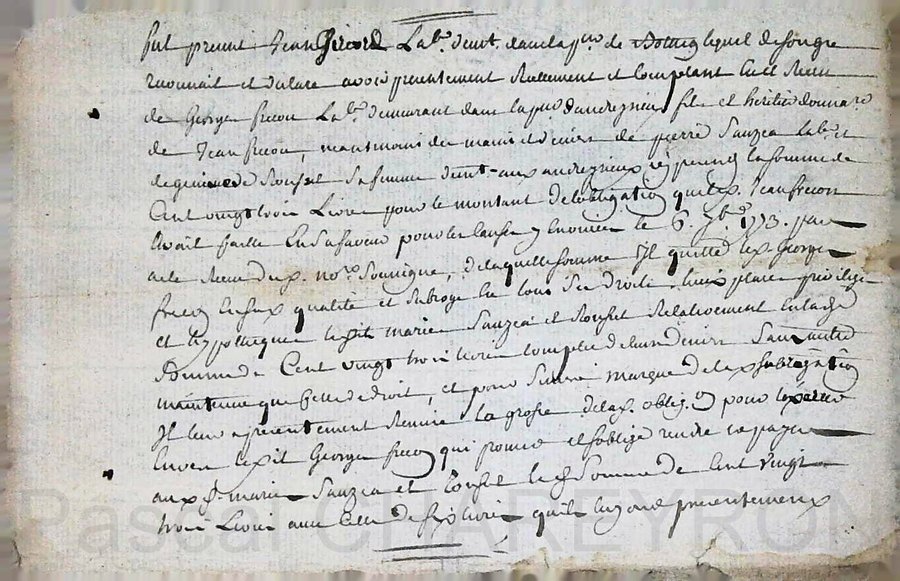 fut present Jean Chicord Lab.r demt. dans la p.sse de lequel de son gre
reconnait et declare avoir presentement reellement et comptant eu et receu
de George frecon Lab.r demurant dans la p.sse d'andrezieux fils et heritier
de Jean frecon, neantmoins des mains et deniers de pierre Sauzea lab.r et
de Fonfet Sa femme demt. aux andrezieux icy presents la somme de
Cent vingt trois Livres pour le montant de lobligation que le d. Jean frecon
avait passée En Sa faveur pour les causes y Enoncées le 6. 7b.re 1773. par
acte Receu du d. no.re Souvigne, de laquelle somme Il quitte le d. George
frecon En sa d. qualité et subroge En tous Ses droits lieux place privilege
et hypotheque lesdits mariés Sauzea et Fonfet Relativement En la d.
Somme de Cent vingt trois livres de leurs deniers Sans autre
maintenue que celle de droit, et pour Seure marque de la d. subrogation
Il leur a presentement Remise la grosse de la d. oblig.on pour
led.it George frecon qui promet et soblige rendre et payer
aux d. mariés Sauzea et Fonfet la d. Somme de Cent vingt
trois Livres avec Celle de six livres qu'ils luy ont presentement
Pascal CHAREYRON